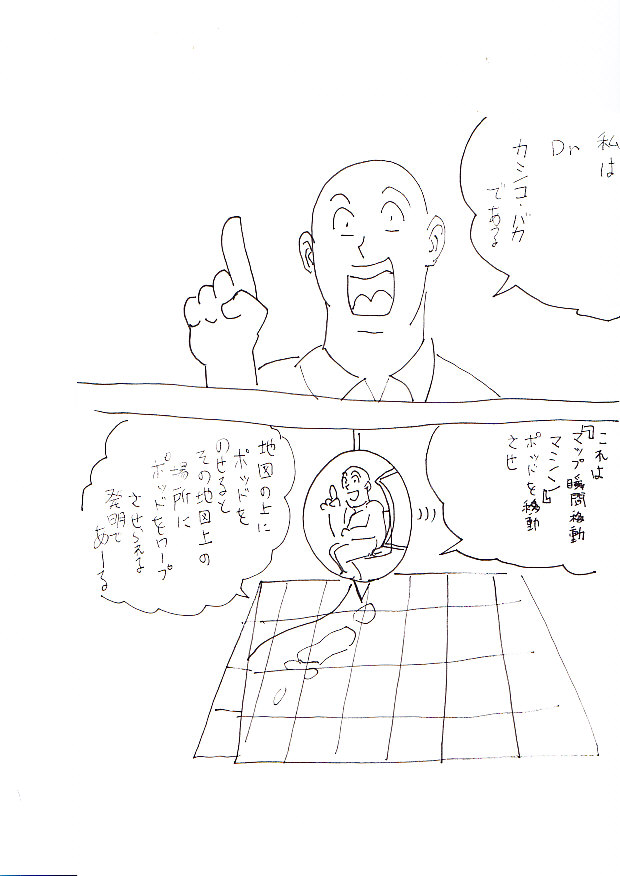 私は
Dr
カシコ・バカ
である
これは
『マップ瞬間移動
マシン』
ポッドを移動
させ
地図の上に
ポッドを
のせると
その地図上の
場所に
ポッドをワープ
させらえる
発明で
あーる